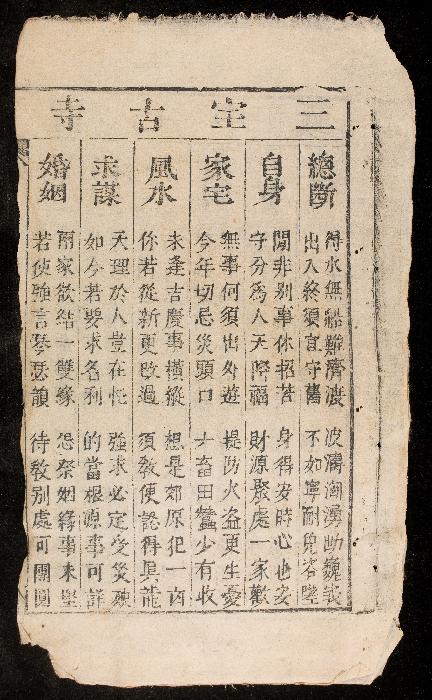 三宝古寺
總斷
得水無船難濟渡 波濤洶湧助巍裳
出入終須宜守舊 不如寧耐免咨墜
自身
閒非别事休招苦 身得安時心也安
守分為人天降福 財源聚處一家歡
家宅
無事何須出外遊 提防火盗更生憂
今年切忌災頭口 六畜田蠶少有收
風水
未逢吉慶事橫縱 想是郊原犯一凶
你若從新更改過 須教使認得真龍
求謀
天理於人豈在忙 強求必定受災殃
如今若要求名利 的當根源事可詳
婚姻
兩家欲結一雙緣 恐祭姻緣事未堅
若使強言琴瑟韻 待教别處可團圓